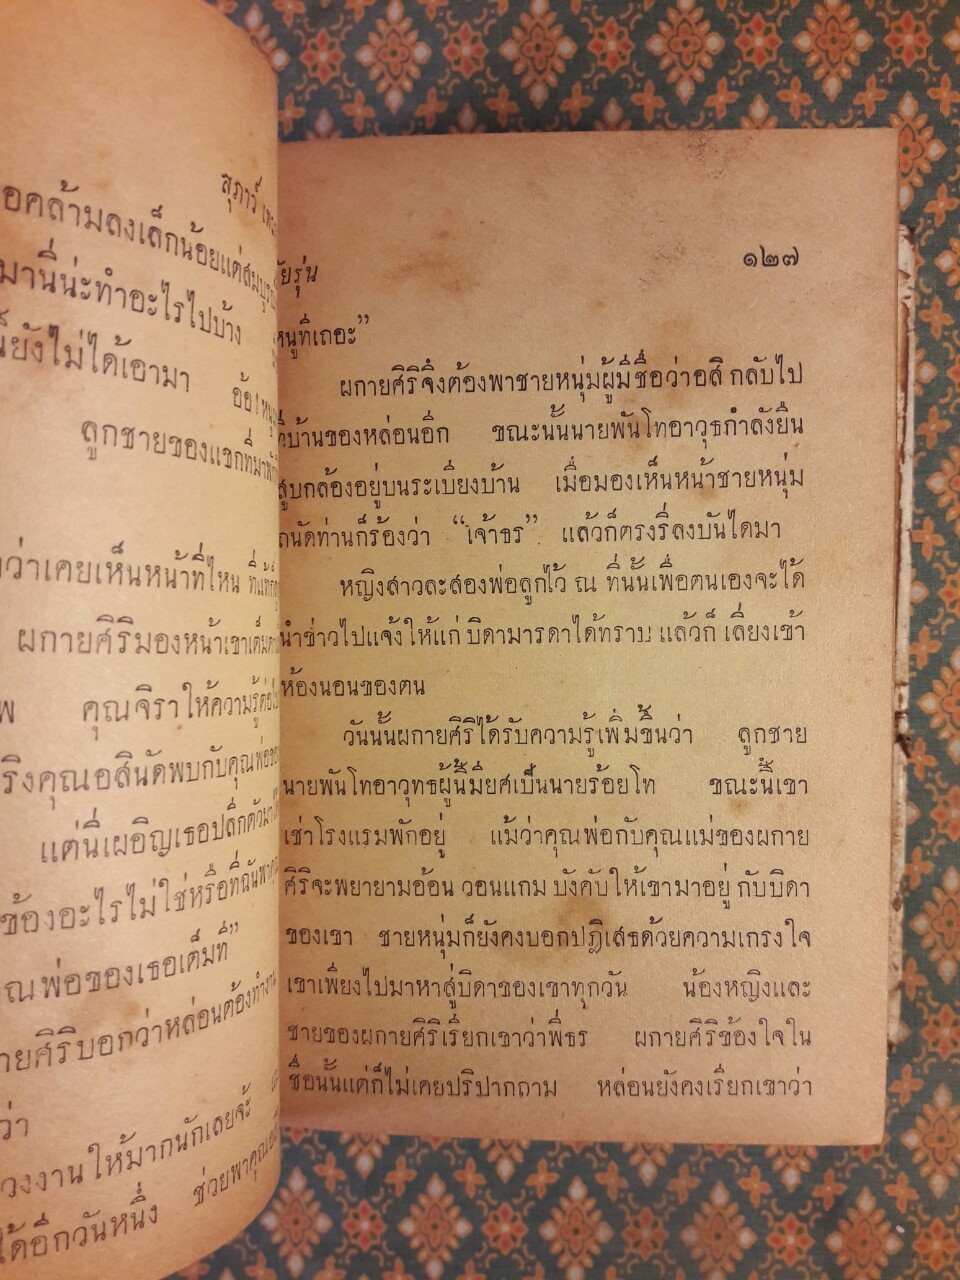 สุภาว์
อคล้ามลงเล็กน้อยแต่สมบูรณ์
มานี่น่ะทำอะไรไปบ้าง
ยังไม่ได้เอามา อ้อ!
ลูกชายของแขกที่มาพัก
ว่าเคยเห็นหน้าที่ไหน
ผกายศิริมองหน้าเขาเต็มตา
พ คุณจิราให้ความรู้ต่อไป
ริงคุณอสินัดพบกับคุณพ่อของ
แต่นี่เผอิญเธอปลีกตัวมา
ข้องอะไรไม่ใช่หรือที่ฉันพาคุณ
ณพ่อของเธอเต็มที่”
ายศิริบอกว่าหล่อนต้องทำงาน
ว่า
วงงานให้มากนักเลยจ้ะ
ได้อีกวันหนึ่ง ช่วยพาคุณอสิ
ัยรุ่น ๑๒๗
หนูทีเถอะ”
ผกายศิริจึงต้องพาชายหนุ่มผู้มีชื่อว่าอสิ กลับไป
ที่บ้านของหล่อนอีก ขณะนั้นนายพันโทอาวุธกำลังยืน
สูบกล้องอยู่บนระเบียงบ้าน เมื่อมองเห็นหน้าชายหนุ่ม
ถนัดท่านก็ร้องว่า “เจ้าธร” แล้วก็ตรงรี่ลงบันไดมา
หญิงสาวละสองพ่อลูกไว้ ณ ที่นั้นเพื่อตนเองจะได้
นำข่าวไปแจ้งให้แก่ บิดามารดาได้ทราบ แล้วก็ เลี่ยงเข้า
ห้องนอนของตน
วันนั้นผกายศิริได้รับความรู้เพิ่มขึ้นว่า ลูกชาย
นายพันโทอาวุทธผู้นี้มียศเป็นนายร้อยโท ขณะนี้เขา
เช่าโรงแรมพักอยู่ แม้ว่าคุณพ่อกับคุณแม่ของผกาย
ศิริจะพยายามอ้อน วอนแกม บังคับ ให้เขามาอยู่ กับบิดา
ของเขา ชายหนุ่มก็ยังคงบอกปฏิเสธด้วยความเกรงใจ
เขาเพียงไปมาหาสู่บิดาของเขาทุกวัน น้องหญิงและ
ชายของผกายศิริเรียกเขาว่าพี่ธร ผกายศิริข้องใจใน
ชื่อนั้นแต่ก็ไม่เคยปริปากถาม หล่อนยังคงเรียกเขาว่า